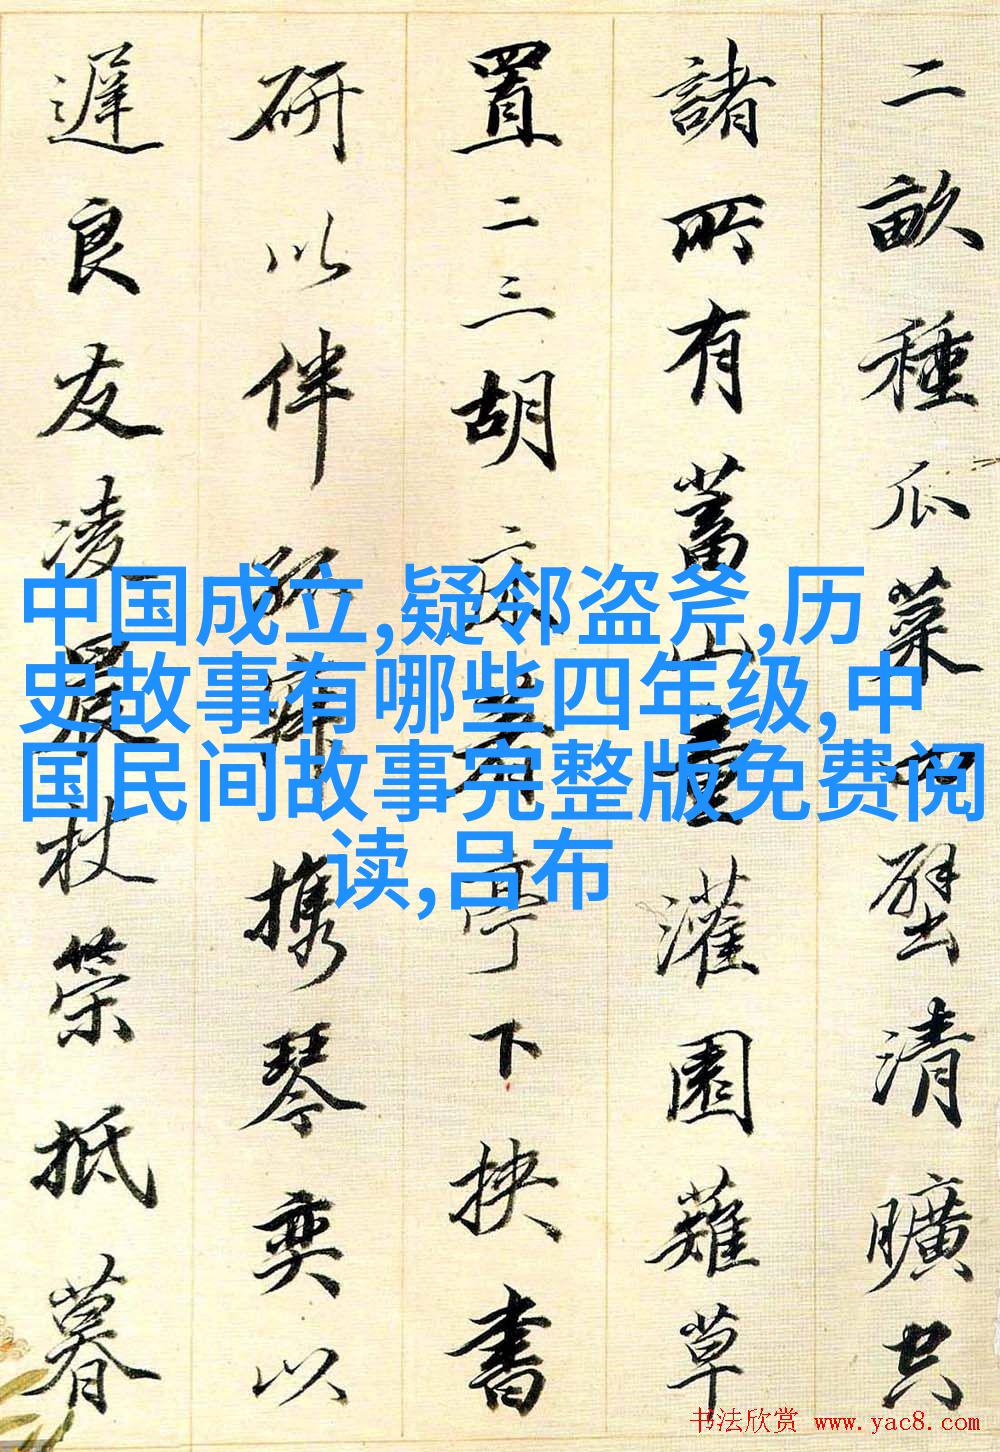 二畝種瓜菜四壁清曠共
諸所有蓄山童灌園薙草
置二三胡床著亭下挟書
研以伴孤寂携琴奕以
遲良友凌晨杖策抵暮
中国成立,疑邻盗斧,历
史故事有哪些四年级,中
国民间故事完整版免费阅
读,吕布
书法欣赏 www.yac8.com